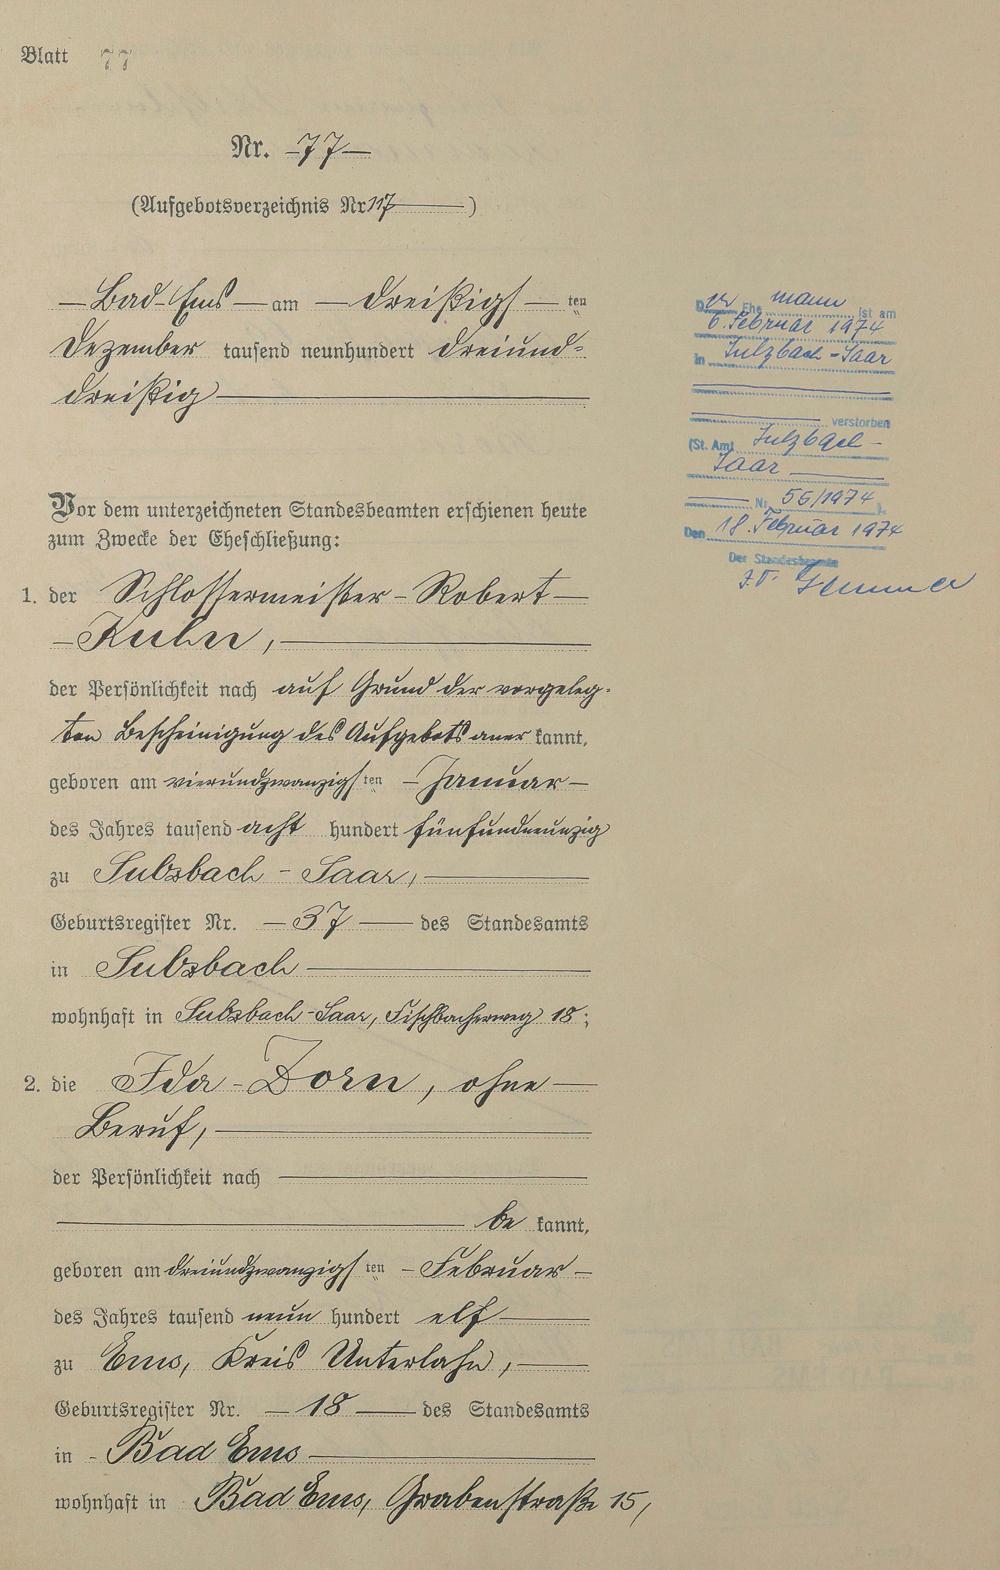 Blatt 77
Nr. 77
(Aufgebotsverzeichnis Nr. 117)
Bad Ems am dreißigsten
Dezember tausend neunhundert dreiund-
dreißig
Der Ehemann ist am
6. Februar 1974
in Sulzbach-Saar
verstorben
(St. Amt Sulzbach-
Saar
Nr. 55/1974).
Den 18. Februar 1974
Der Standesbeamte
I.V.
Vor dem unterzeichneten Standesbeamten erschienen heute
zum Zwecke der Eheschließung:
1. der Schlossermeister Robert
Kuhn,
der Persönlichkeit nach auf Grund der vorgeleg-
ten Bescheinigung des Aufgebots anerkannt,
geboren am vierundzwanzigsten Januar
des Jahres tausend acht hundert fünfundneunzig
zu Sulzbach-Saar,
Geburtsregister Nr. 37 des Standesamts
in Sulzbach
wohnhaft in Sulzbach-Saar, Fischbacherweg 18;
2. die Ida Dorn, ohne
Beruf,
der Persönlichkeit nach
bekannt,
geboren am dreiundzwanzigsten Februar
des Jahres tausend neun hundert elf
zu Ems, Kreis Unterlahn,
Geburtsregister Nr. 18 des Standesamts
in Bad Ems
wohnhaft in Bad Ems, Grabenstraße 15,